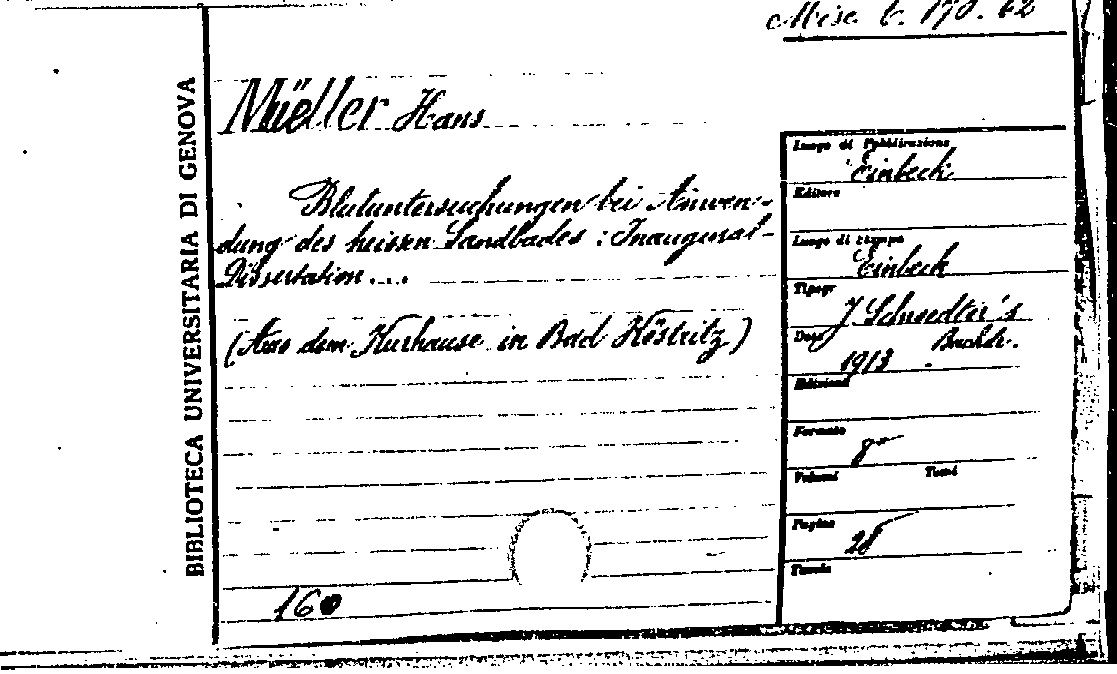 Misc. C. 170. 62
BIBLIOTECA UNIVERSITARIA DI GENOVA
Müeller Hans
Blutuntersuchungen bei Anwen-
dung des heissen Sandbades : Inaugural-
Dissertation...
(Aus dem Kurhause in Bad Köstritz)
160
Luogo di Pubblicazione
Einbeck
Editore
Luogo di stampa
Einbeck
Tipogr
J. Schroedter's
Data
Buchdr.
1913
Edizione
Formato
8°
Volumi Tomi
Pagine
28
Tavole